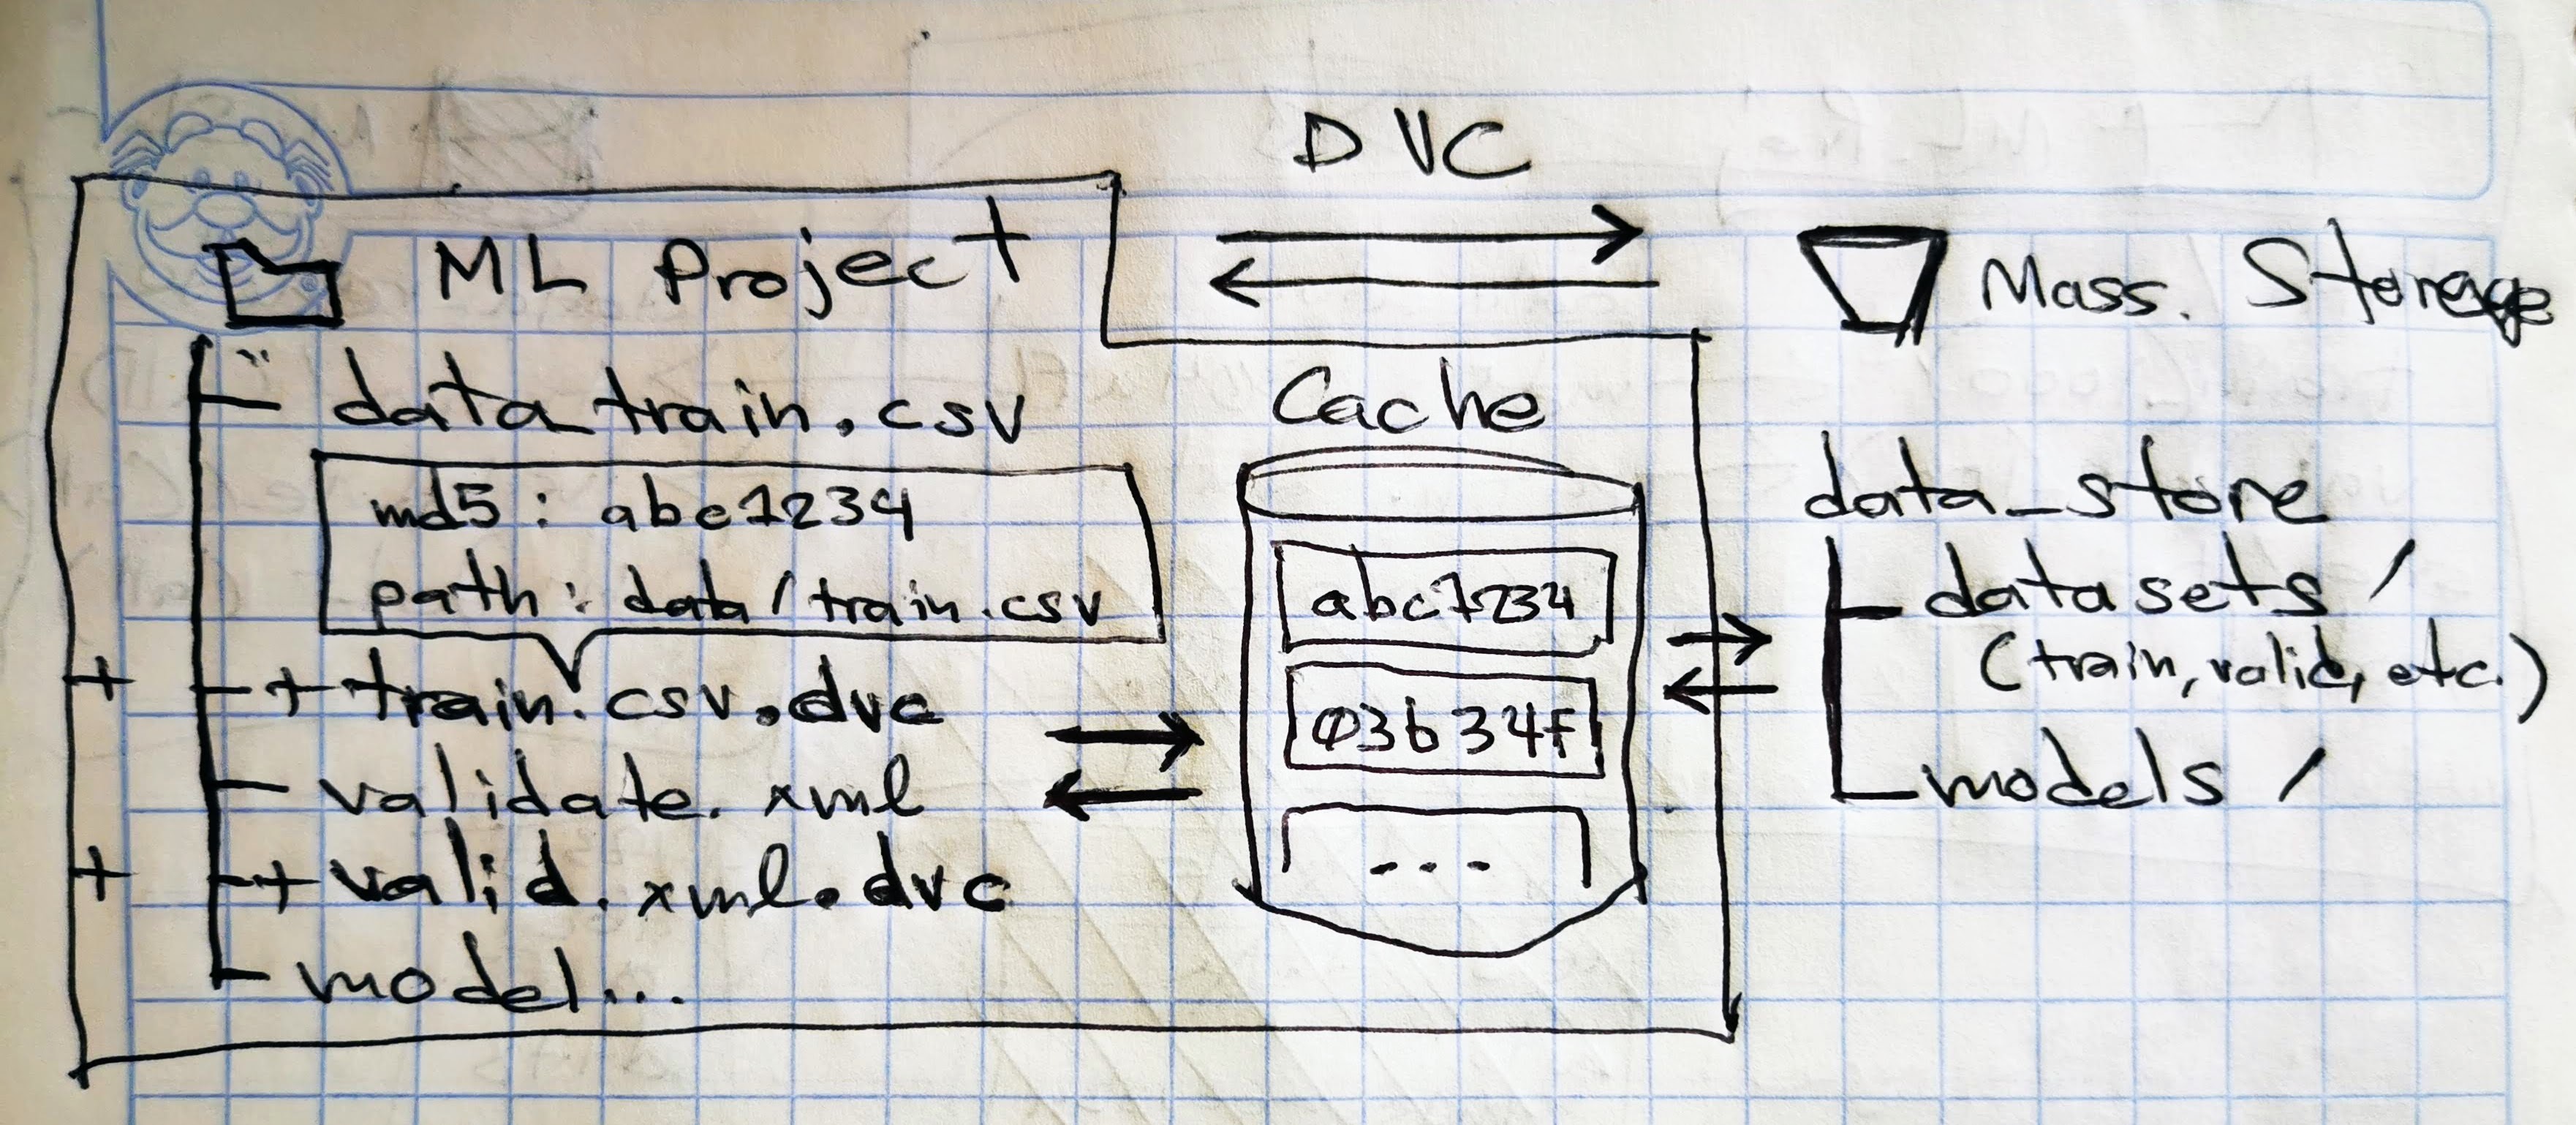 DVC
ML Project
data_train.csv
md5: abc1234
path: data/train.csv
+ + train.csv.dvc
validate.xml
+ + valid.xml.dvc
model...
Cache
abc1234
03b34f
...
Mass. Storage
data_store
datasets/
(train, valid, etc.)
models/